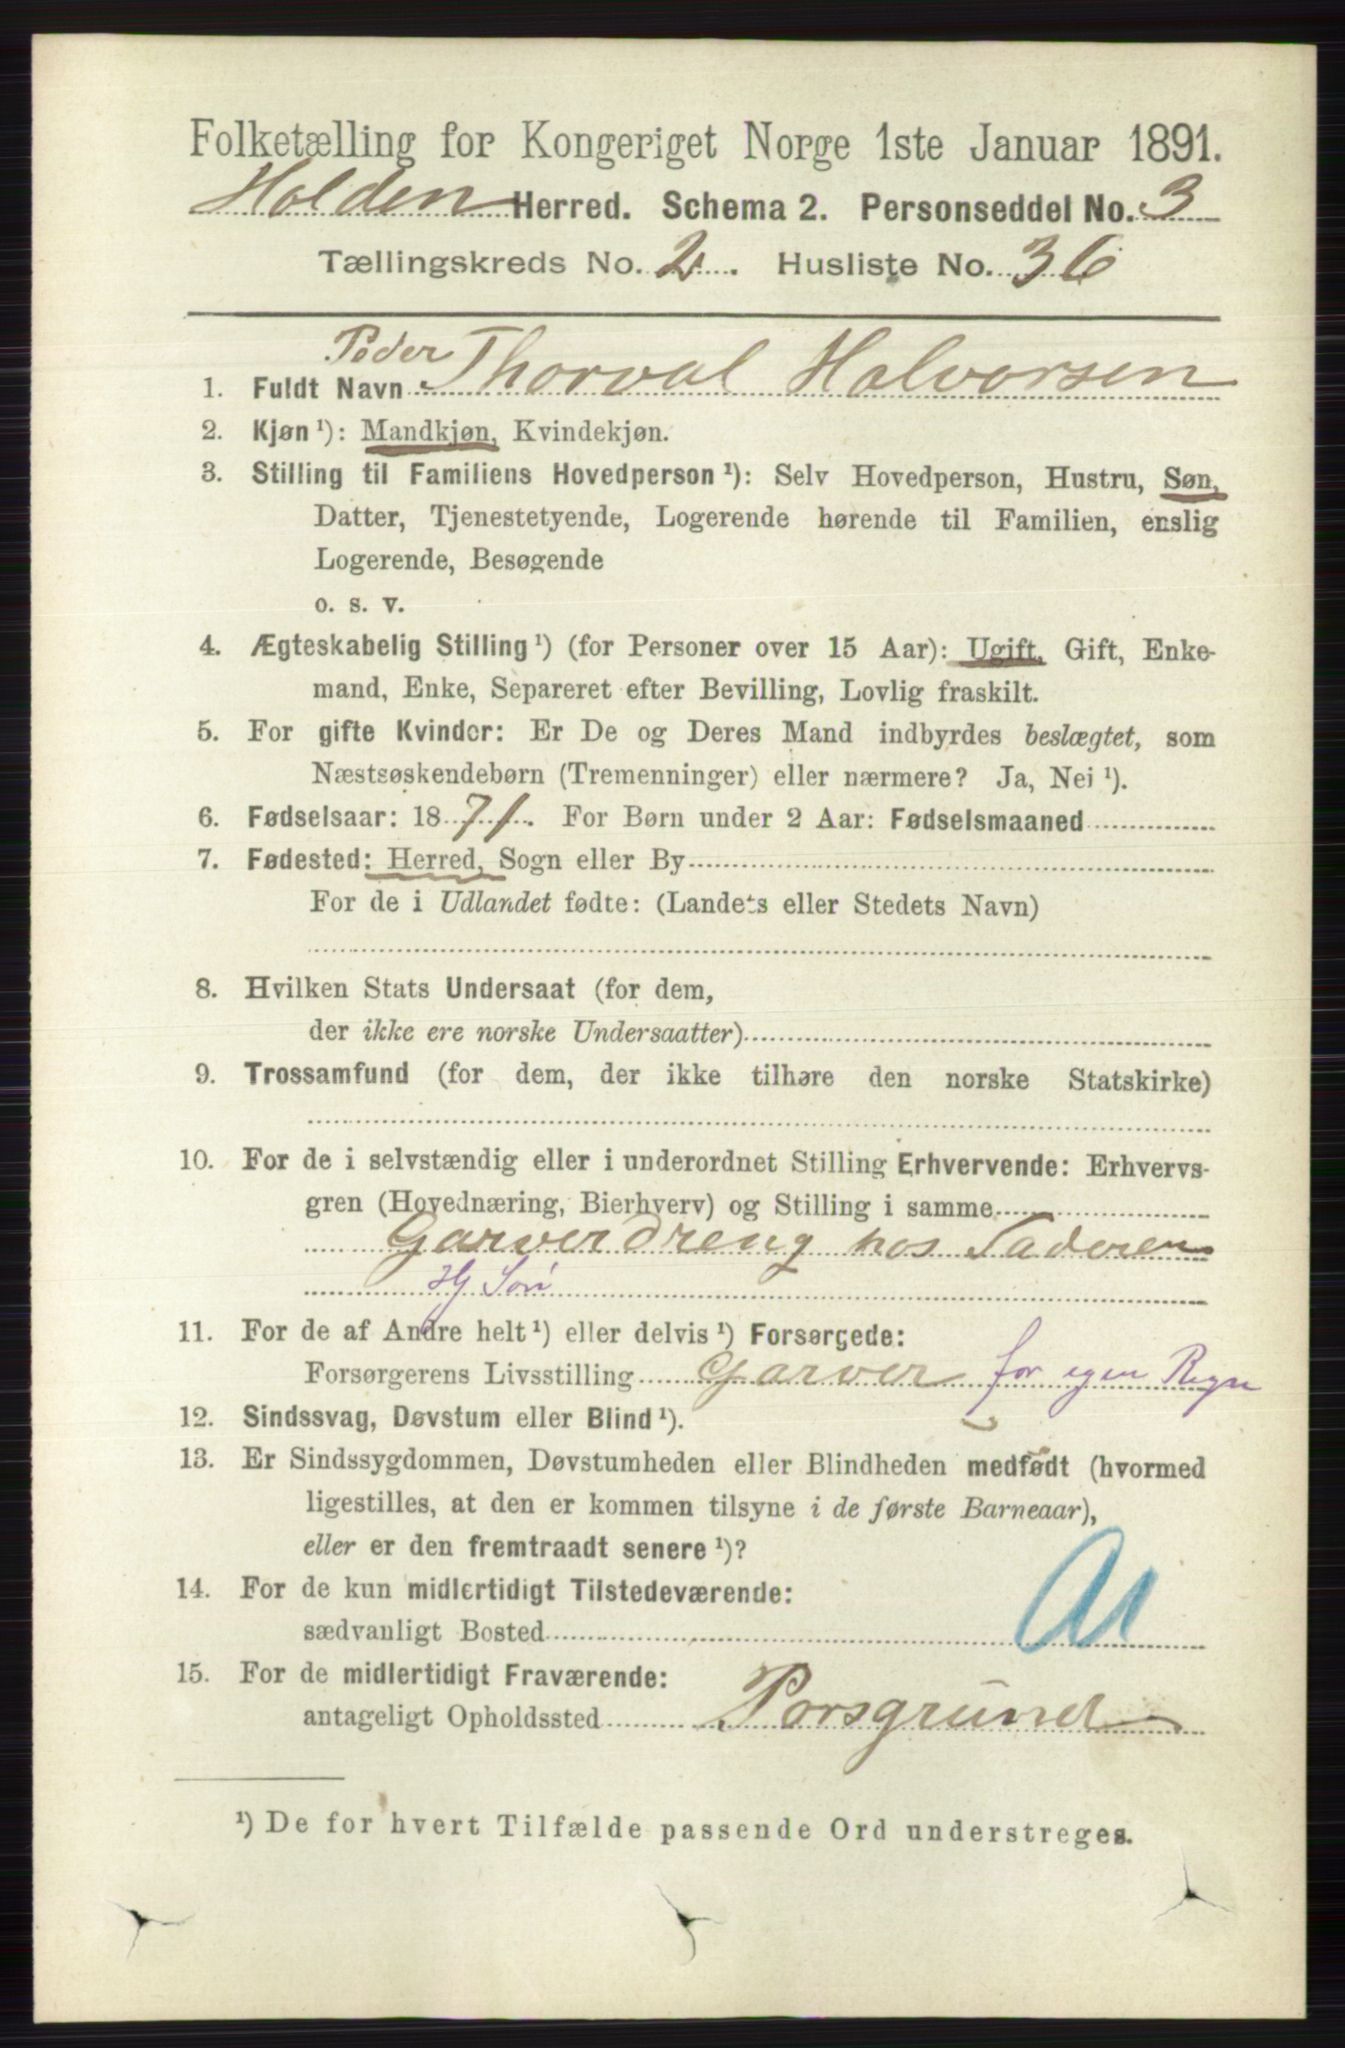 Folketælling for Kongeriget Norge 1ste Januar 1891.
Holden Herred. Schema 2. Personseddel No. 3
Tællingskreds No. 2. Husliste No. 36
Peder Thorval Halvorsen
1. Fuldt Navn
2. Kjøn ¹): Mandkjøn, Kvindekjøn.
3. Stilling til Familiens Hovedperson ¹): Selv Hovedperson, Hustru, Søn,
Datter, Tjenestetyende, Logerende hørende til Familien, enslig
Logerende, Besøgende
o. s. v.
4. Ægteskabelig Stilling ¹) (for Personer over 15 Aar): Ugift, Gift, Enke-
mand, Enke, Separeret efter Bevilling, Lovlig fraskilt.
5. For gifte Kvinder: Er De og Deres Mand indbyrdes beslægtet, som
Næstsøskendebørn (Tremenninger) eller nærmere? Ja, Nei ¹).
6. Fødselsaar: 1871. For Børn under 2 Aar: Fødselsmaaned
7. Fødested: Herred, Sogn eller By
For de i Udlandet fødte: (Landets eller Stedets Navn)
8. Hvilken Stats Undersaat (for dem,
der ikke ere norske Undersaatter)
9. Trossamfund (for dem, der ikke tilhøre den norske Statskirke)
10. For de i selvstændig eller i underordnet Stilling Erhvervende: Erhvervs-
gren (Hovednæring, Bierhverv) og Stilling i samme
Garverdreng hos Faderen
Hj Søn
11. For de af Andre helt ¹) eller delvis ¹) Forsørgede:
Forsørgerens Livsstilling Garver for egen Regn
12. Sindssvag, Døvstum eller Blind ¹).
13. Er Sindssygdommen, Døvstumheden eller Blindheden medfødt (hvormed
ligestilles, at den er kommen tilsyne i de første Barneaar),
eller er den fremtraadt senere ¹)?
14. For de kun midlertidigt Tilstedeværende:
sædvanligt Bosted
15. For de midlertidigt Fraværende:
antageligt Opholdssted Porsgrund
¹) De for hvert Tilfælde passende Ord understreges.